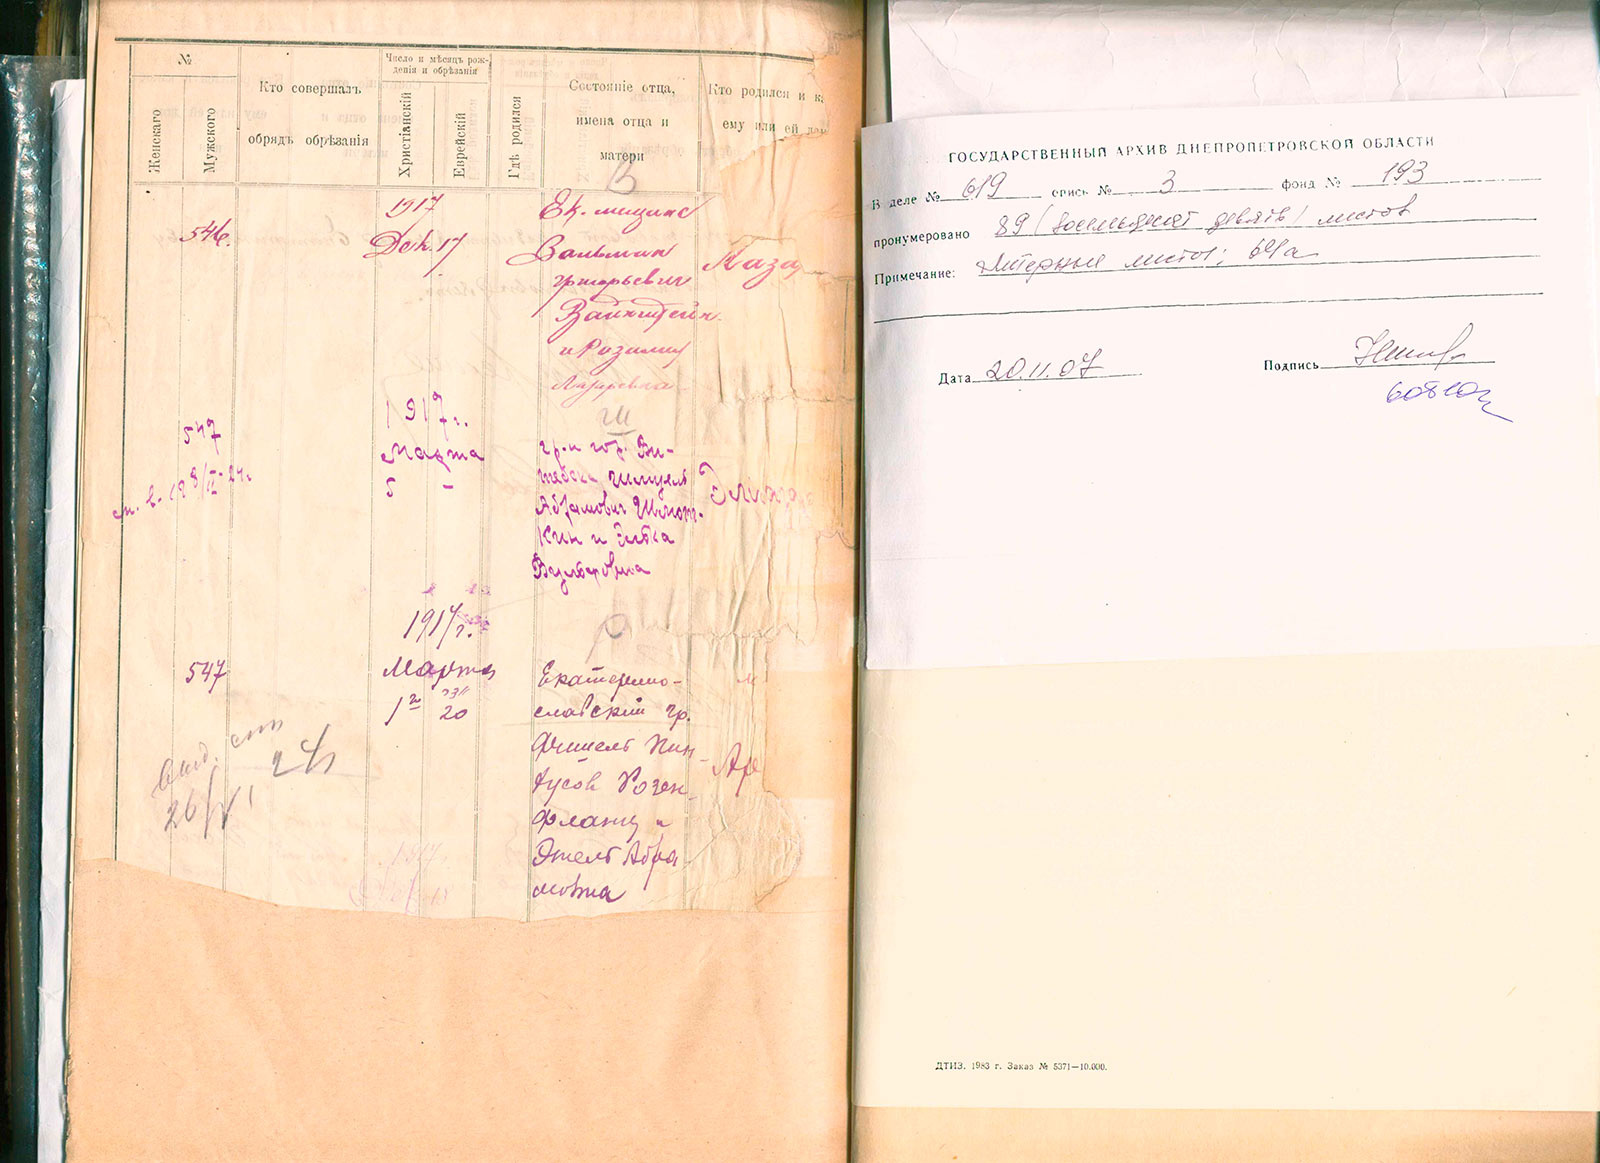 №
Женскаго
Мужского
Кто совершалъ
обрядъ обрѣзанія
Число и мѣсяцъ рож-
денія и обрѣзанія
Христіанскій
Еврейскій
Гдѣ родился
Состояніе отца,
имена отца и
матери
Кто родился и к
ему или ей
В
546.
1917
Дек. 17
Ек. мещан
Залман
Григорьевич
Вайнштейн
и Розалия
Лазаревна
Лаза
547
1917 г.
Марта
5 –
Ш
гр-н гор. Ви-
тебска
Абрамович
кин и Элька
Элиаз
547
1917 г.
Марта
12 20
Р
Екатерино-
славский гр.
Фишель Пин-
хусов Розен-
фланц и
Этель Абра-
мовна
Аре
Выд.
24
26/VI
ГОСУДАРСТВЕННЫЙ АРХИВ ДНЕПРОПЕТРОВСКОЙ ОБЛАСТИ
В деле № 619 опись № 3 фонд № 193
пронумеровано 89 (восемьдесят девять) листов
Примечание: Литерные листы: 64а
Дата 20.11.07 Подпись
ДТИЗ. 1983 г. Заказ № 5371—10.000.